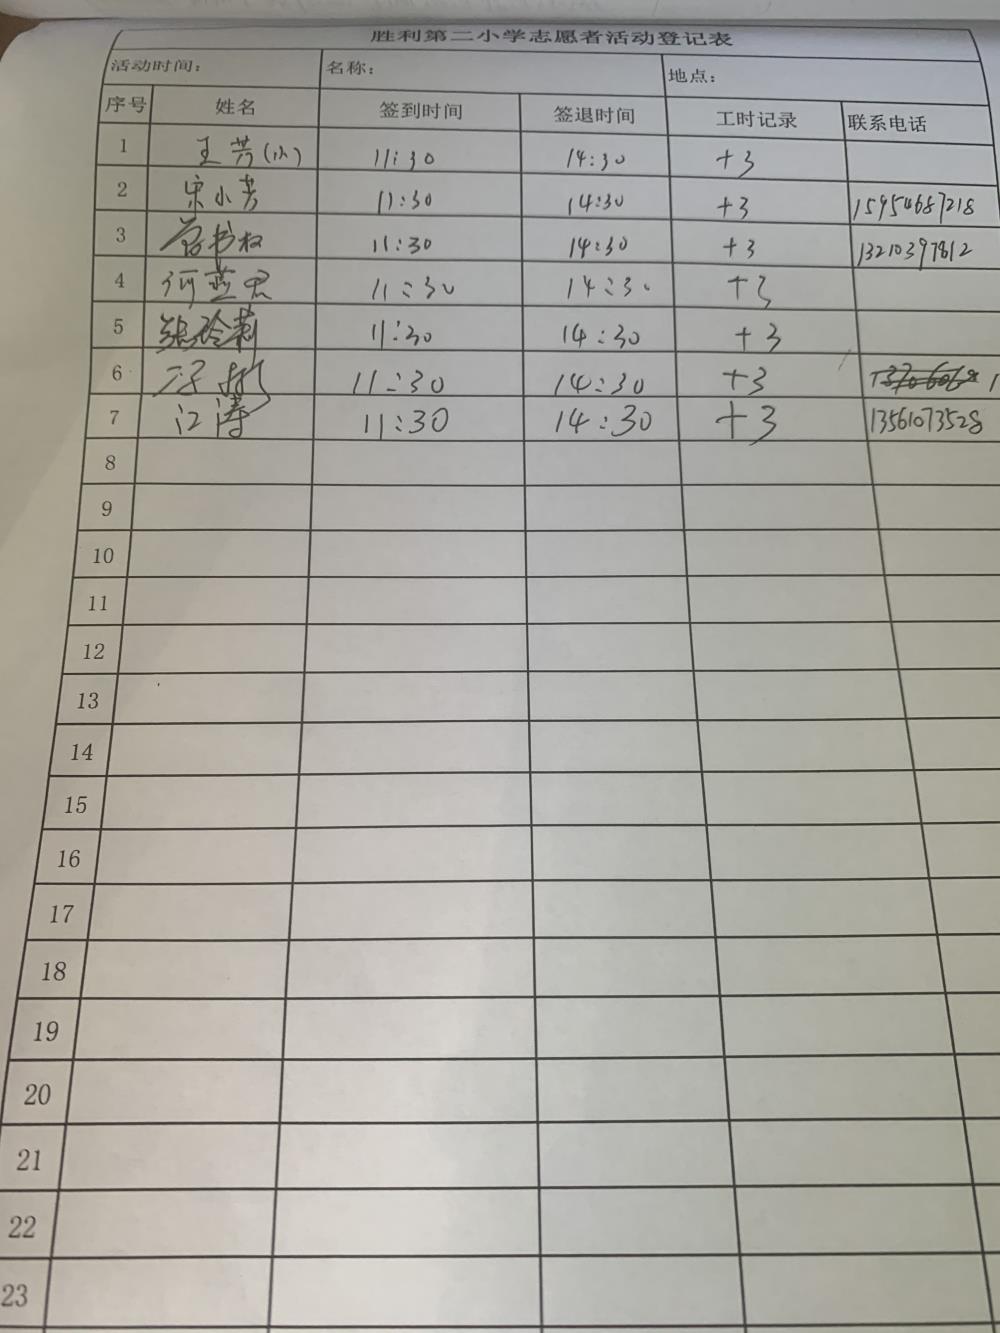 胜利第二小学志愿者活动登记表
活动时间: 名称: 地点:
序号 姓名 签到时间 签退时间 工时记录 联系电话
1 王芳(小) 11:30 14:30 +3
2 宋小芳 11:30 14:30 +3 15954687218
3 11:30 14:30 +3 13210397812
4 11:30 14:30 +3
5 11:30 14:30 +3
6 11:30 14:30 +3
7 江涛 11:30 14:30 +3 13561073528
8
9
10
11
12
13
14
15
16
17
18
19
20
21
22
23